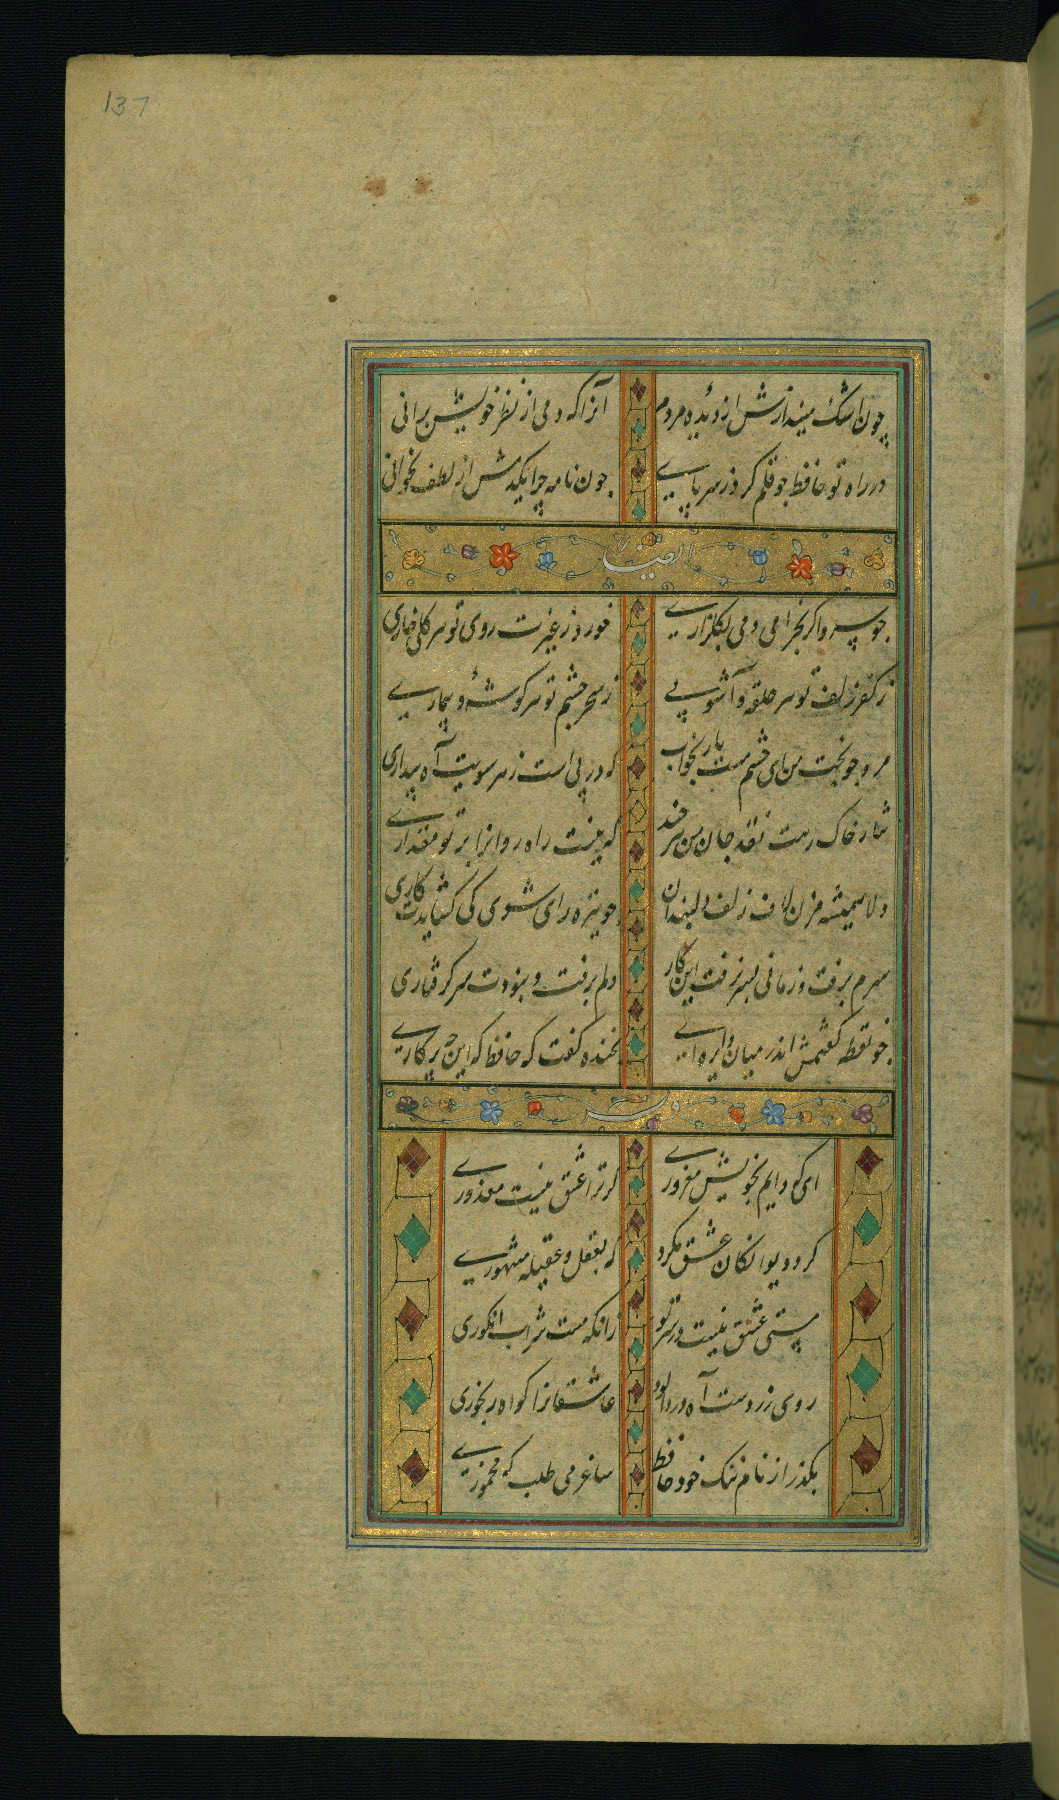 137
چون اشک میندازش از دیده مردم آنرا که دمی از نظر خویش برانی
در راه تو حافظ چو قلم کرد ز سر پای چون نامه چرا یکدمش از لطف نخوانی
ایضا
چو سرو اگر بخرامی دمی بگلزاری خورد ز غیرت روی تو هر گلی خاری
ز کفر زلف تو هر حلقه و آشوبی ز سحر چشم تو هر گوشهٔ و بیماری
مرو چو بخت من ای چشم مست یار بخواب که در پی است ز هر سویت آه بیداری
نثار خاک رهت نقد جان من هرچند که نیست راه روانرا بر تو مقداری
دلا همیشه مزن لاف زلف دلبندان چو تیره رای شوی کی گشایدت کاری
سرم برفت و زمانی بسر نرفت این کار دلم برفت و نبودت سر گرفتاری
چو نقطه گفتمش اندر میان دایره ای بخنده گفت که حافظ که این چه پرکاری
وله
ای که دایم بخویش مغروری گر ترا عشق نیست معذوری
گرد دیوانگان عشق مگرد که بعقل و عقیله مشهوری
مستی عشق نیست در سر تو زانکه مست شراب انگوری
روی زردست آه دردآلود عاشقانرا گواه رنجوری
بگذر از نام ننگ خود حافظ ساغر می طلب که مخموری